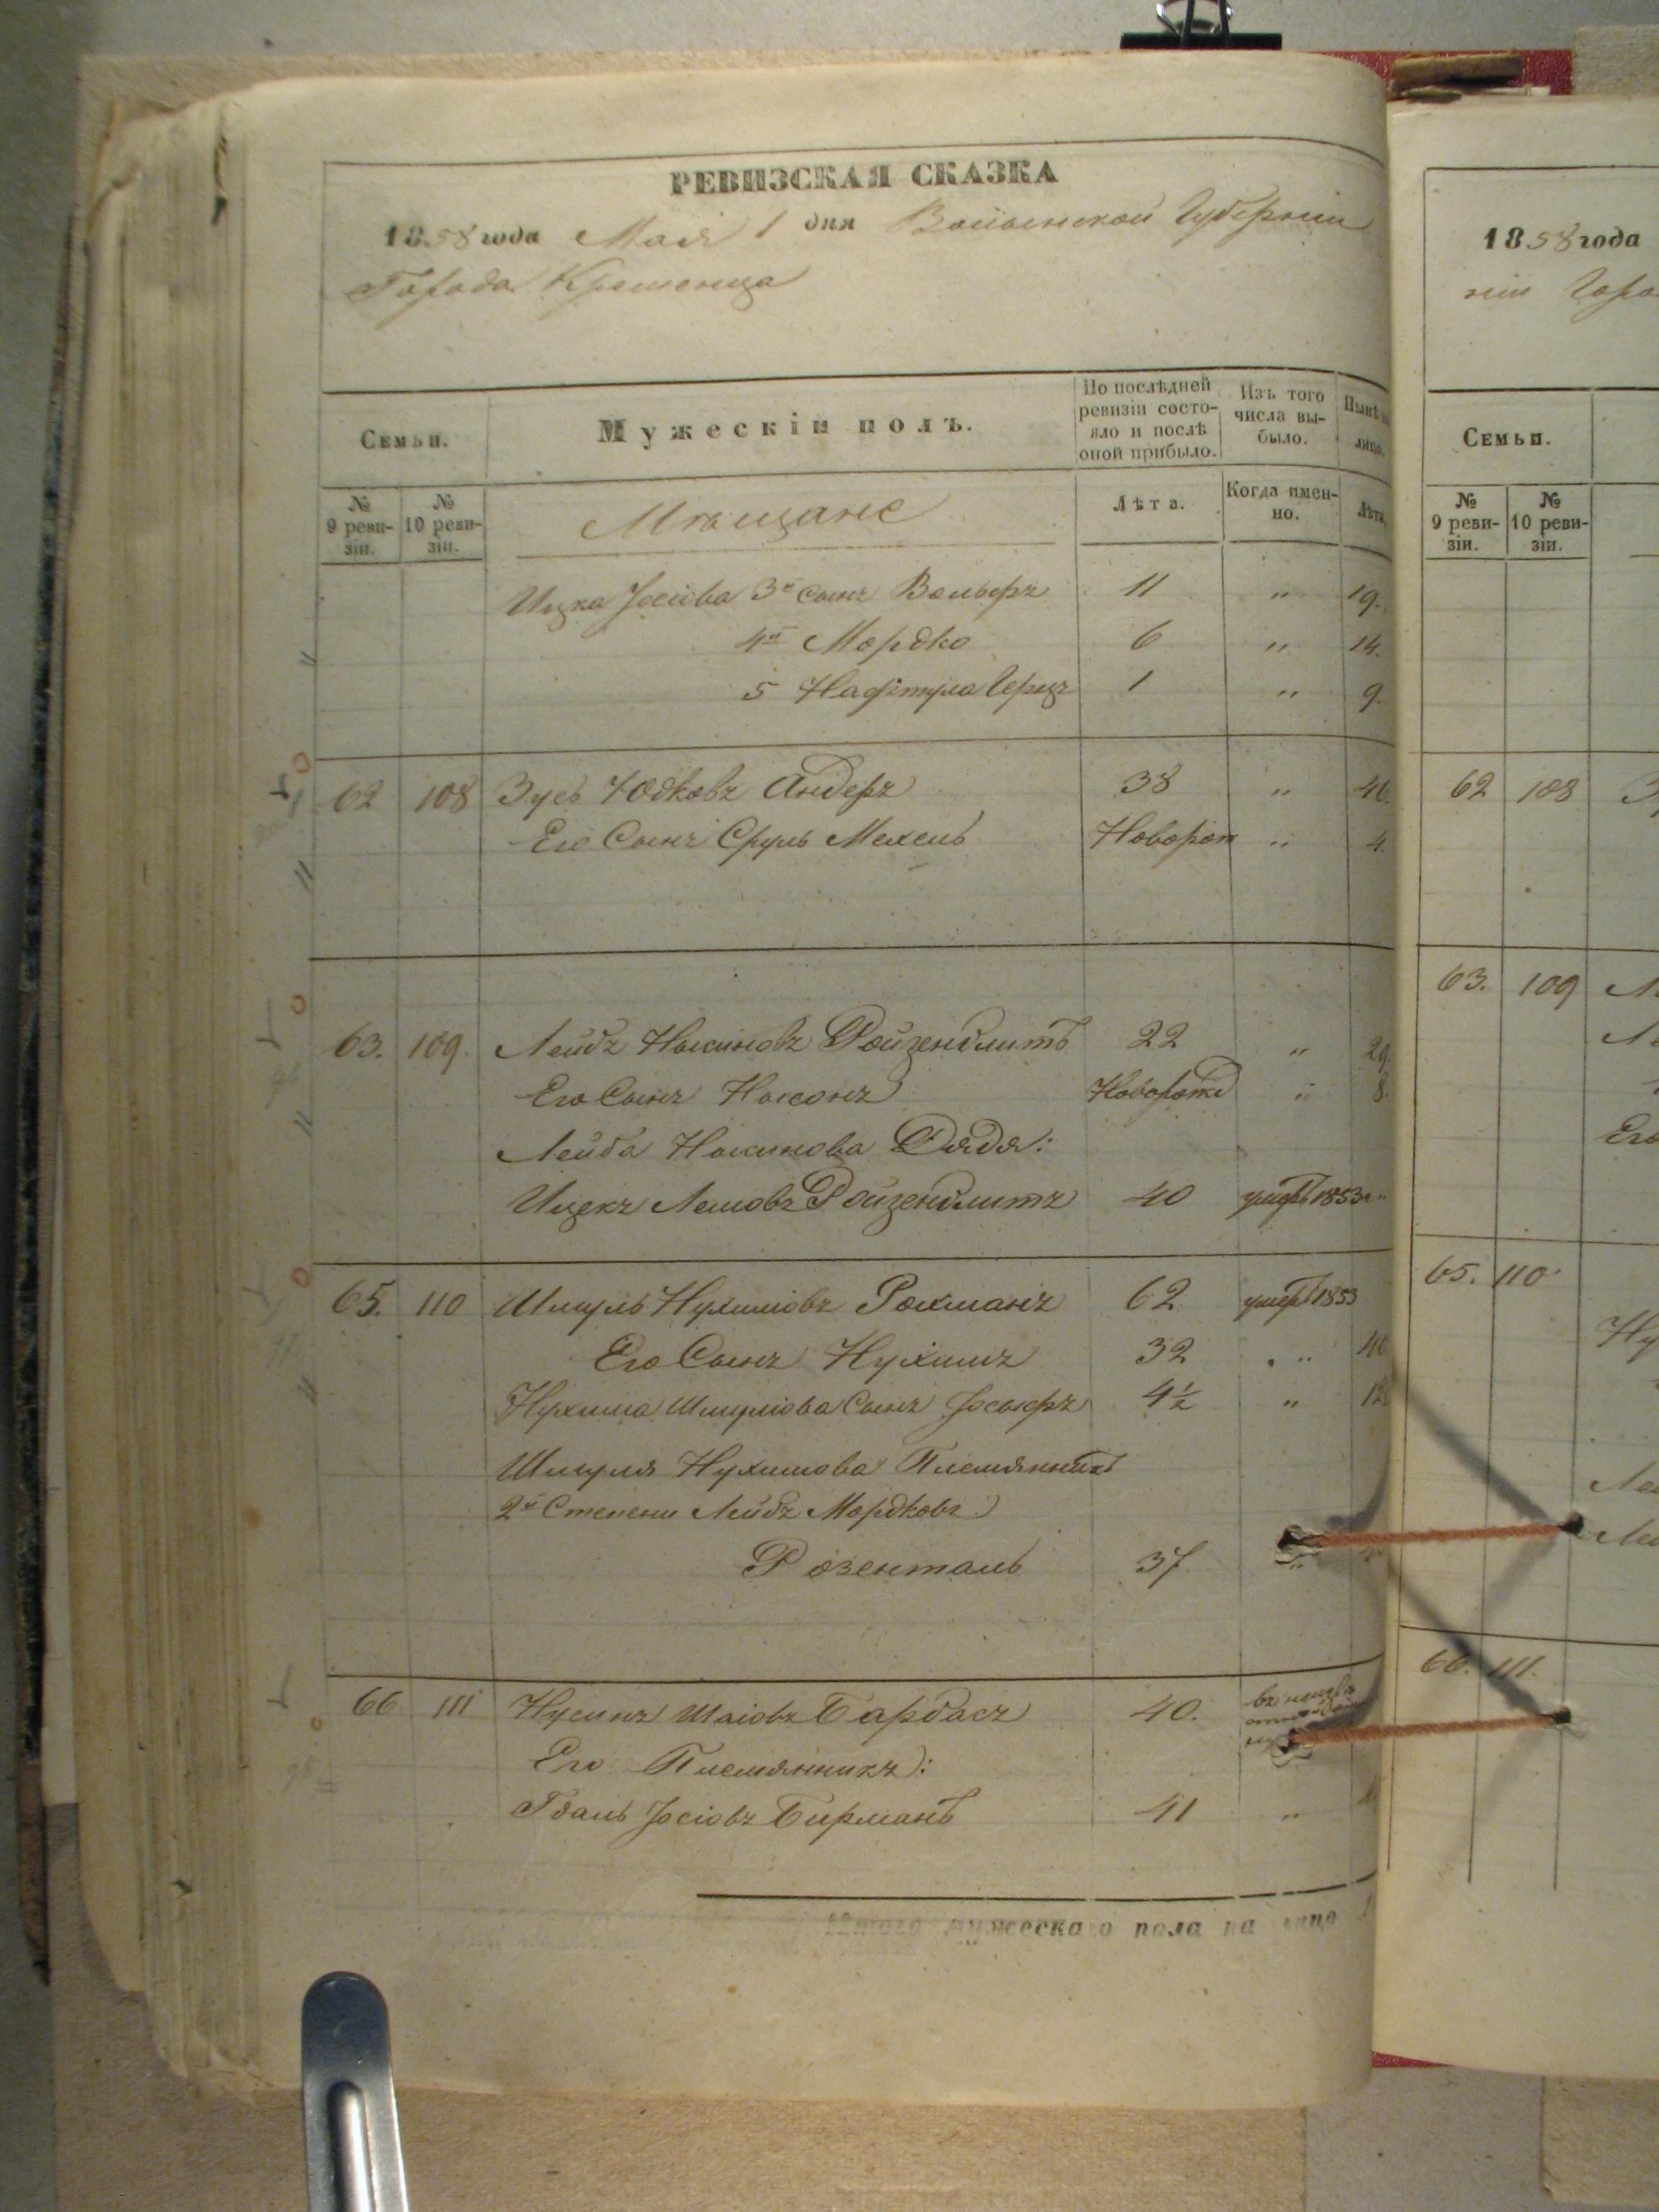 РЕВИЗСКАЯ СКАЗКА
1858 года Мая 1 дня Волынской Губерніи
Города Кременца
Семьи.
Мужескій полъ.
По послѣдней ревизіи состояло и послѣ оной прибыло.
Изъ того числа выбыло.
Нынѣ на лицо.
№ 9 ревизіи.
№ 10 ревизіи.
Мѣщане
Лѣта.
Когда именно.
Лѣта.
Ицка Іосіова 3й сынъ Вольфъ 11 " 19.
4й Мордко 6 " 14.
5 Нафтула Герцъ 1 " 9.
62 108 Зусь Юдковъ Андеръ 38 " 46.
Его Сынъ Сруль Мехель Новорож " 4.
63. 109. Лейбъ Нысиновъ Ройзенблитъ 22 " 29.
Его Сынъ Нысонъ Новорожд " 8.
Лейба Нысинова Дядя:
Ицекъ Лемовъ Ройзенблитъ 40 умеръ 1853 г. "
65. 110 Шмуль Нухимовъ Рохманъ 62 умеръ 1853
Его Сынъ Нухимъ 32 " 40
Нухима Шмуліова Сынъ Іосыфъ 4½ " 12
Шмуля Нухимова Племянникъ
2й Степени Лейбъ Мордковъ
Розенталь 37 "
66 111 Нусинъ Шаіовъ Барбасъ 40.
Его Племянникъ:
Гдаль Іосіовъ Бирманъ 41 "
Итого мужескаго пола на лицо
1858 года
ніи Горо
Семьи.
№ 9 ревизіи.
№ 10 ревизіи.
62 108
63. 109
Его
65. 110
Ну
66. 111.